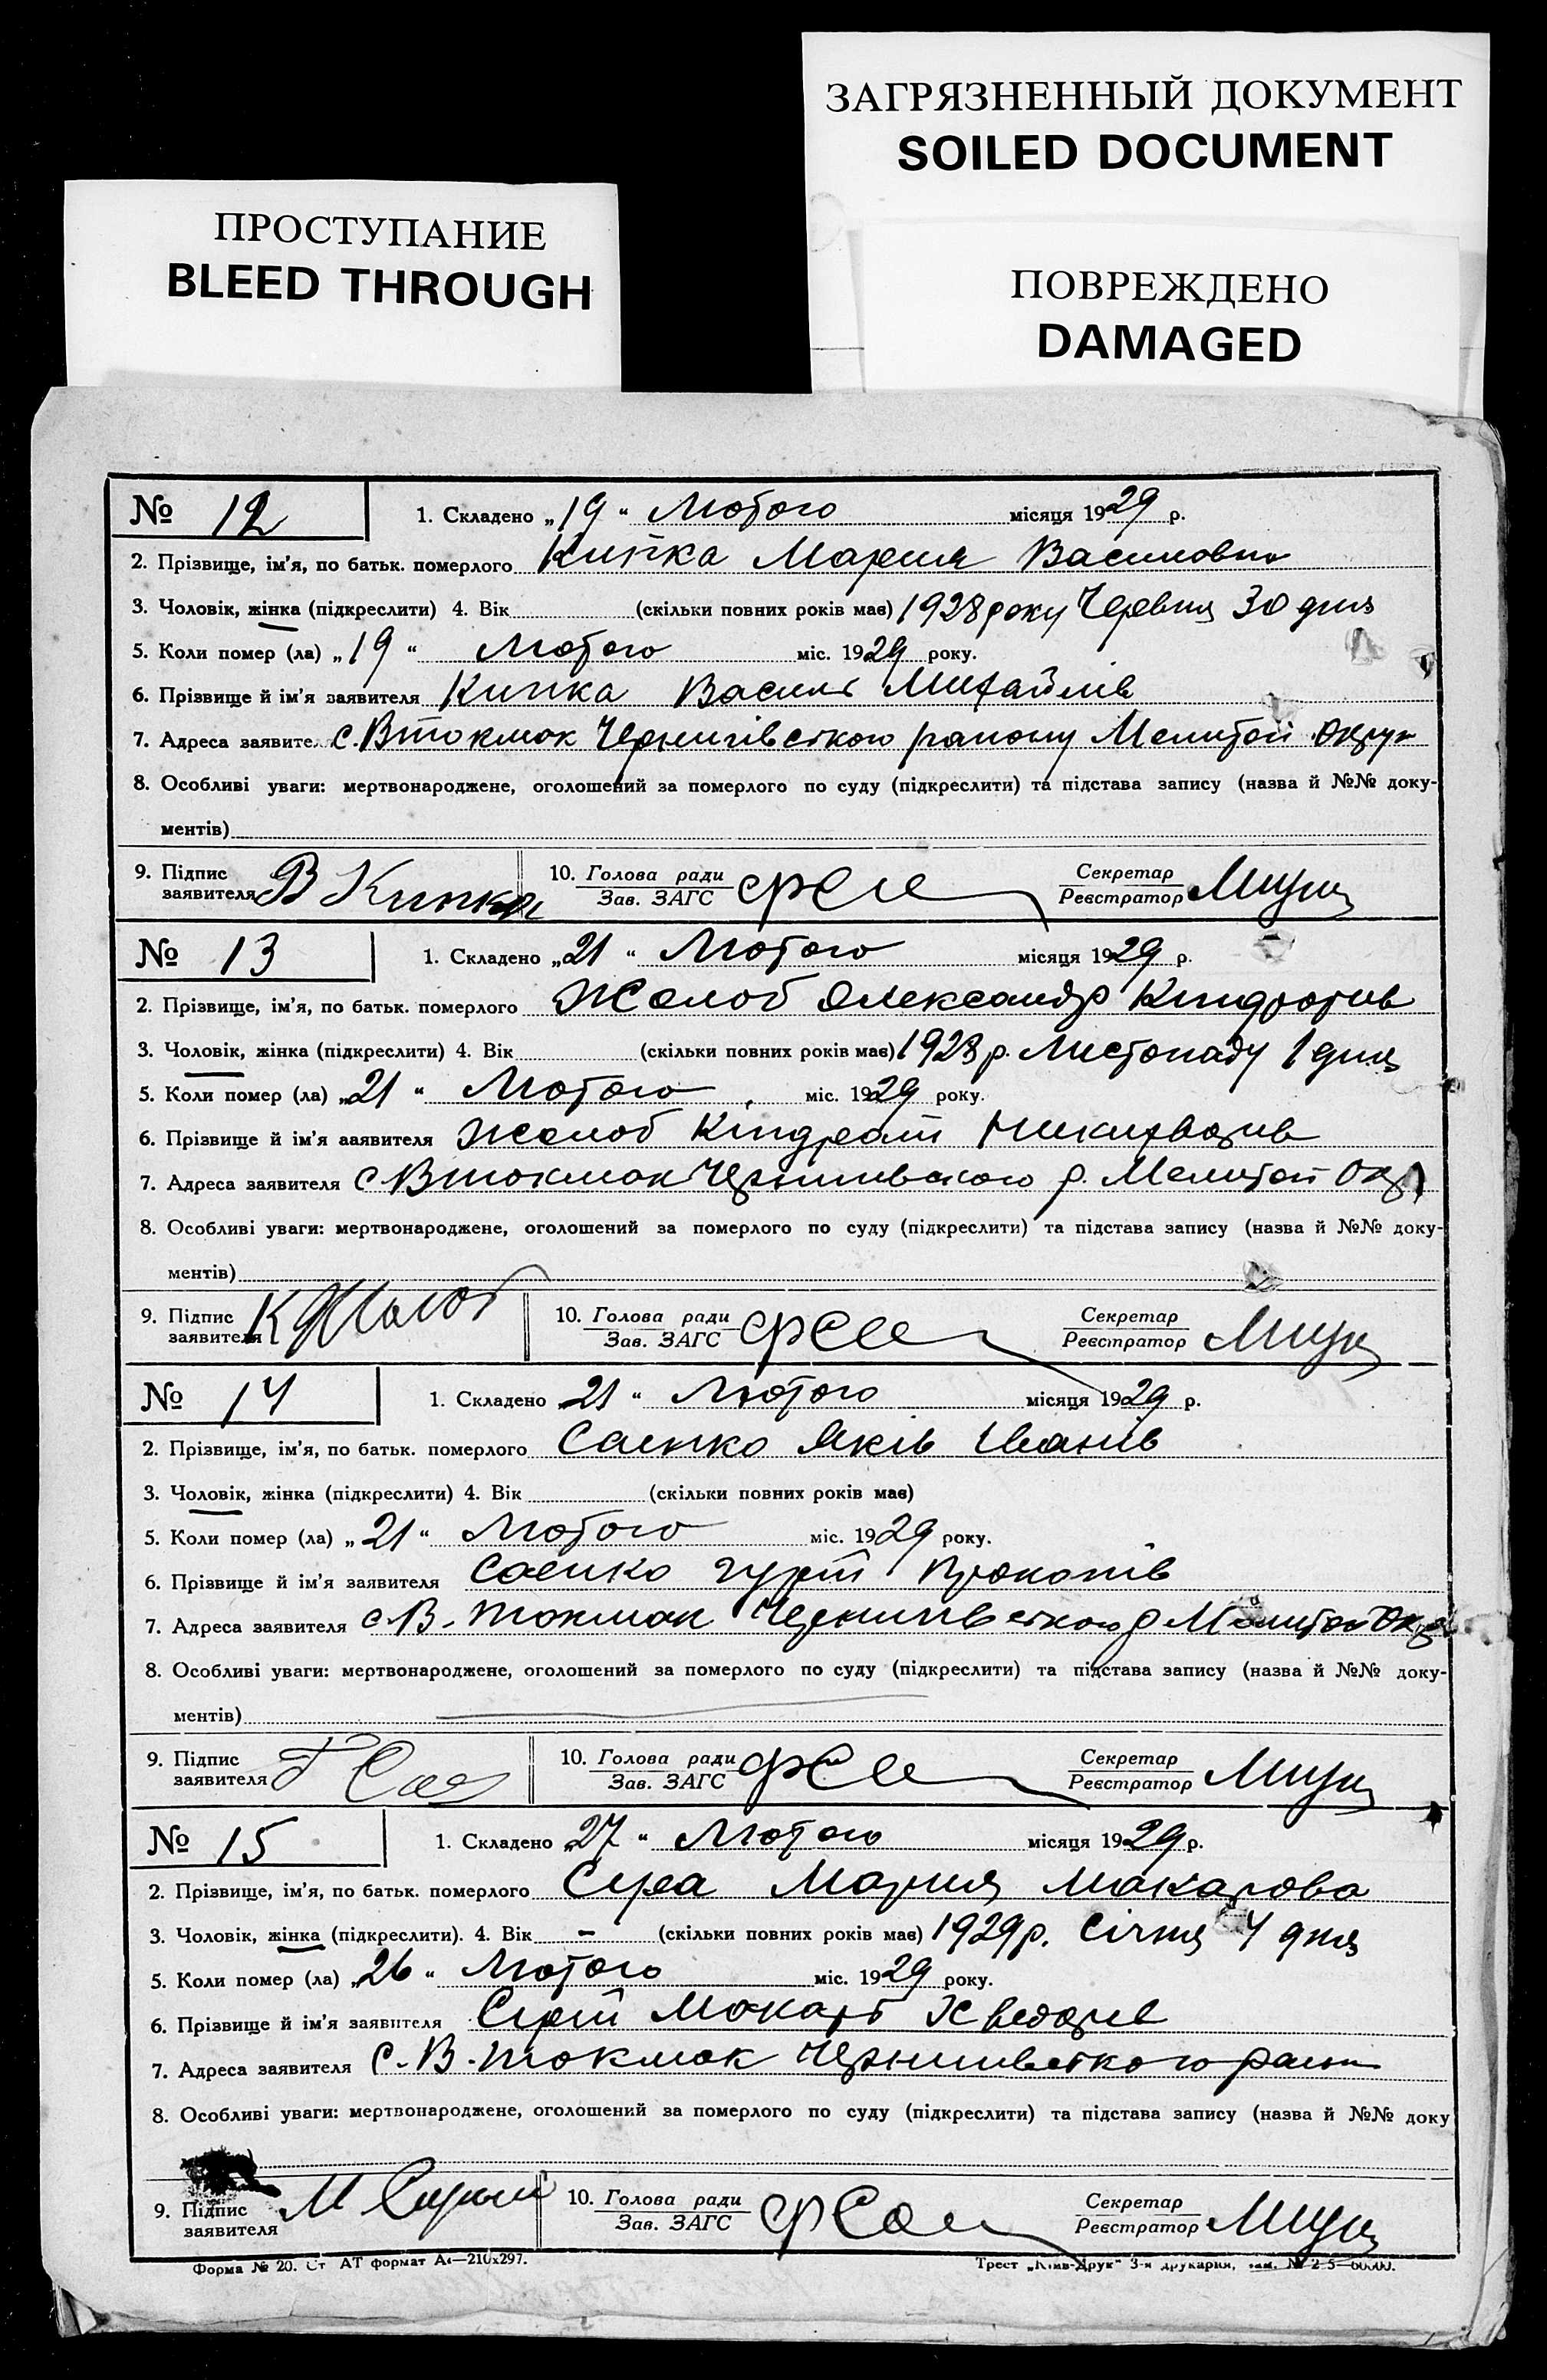 ЗАГРЯЗНЕННЫЙ ДОКУМЕНТ
SOILED DOCUMENT
ПРОСТУПАНИЕ
BLEED THROUGH
ПОВРЕЖДЕНО
DAMAGED
№ 12 1. Складено „19“ Лютого місяця 1929 р.
2. Прізвище, ім'я, по батьк. померлого Кипка Мария Василовна
3. Чоловік, жінка (підкреслити) 4. Вік (скільки повних років має) 1928 року Червня 30 дня
5. Коли помер (ла) „19“ Лютого міс. 1929 року.
6. Прізвище й ім'я заявителя Кипка Василь Михайлів
7. Адреса заявите. с. Втокмак Чернигівського району Мелитоп Округ
8. Особливі уваги: мертвонароджене, оголошений за померлого по суду (підкреслити) та підстава запису (назва й №№ доку-
ментів)
9. Підпис заявителя В Кипка 10. Голова ради Зав. ЗАГС Секретар Реєстратор
№ 13 1. Складено „21“ Лютого місяця 1929 р.
2. Прізвище, ім'я, по батьк. померлого Жолоб Олександр Кіндратів
3. Чоловік, жінка (підкреслити) 4. Вік (скільки повних років має) 1928 р. Листопаду 1 дня
5. Коли помер (ла) „21“ Лютого міс. 1929 року.
6. Прізвище й ім'я заявителя Жолоб Кіндрат
7. Адреса заявителя с Втокмак р. Мелитоп Окр
8. Особливі уваги: мертвонароджене, оголошений за померлого по суду (підкреслити) та підстава запису (назва й №№ доку-
ментів)
9. Підпис заявителя К Жолоб 10. Голова ради Зав. ЗАГС Секретар Реєстратор
№ 14 1. Складено „21“ Лютого місяця 1929 р.
2. Прізвище, ім'я, по батьк. померлого Саенко Яків Іванів
3. Чоловік, жінка (підкреслити) 4. Вік (скільки повних років має)
5. Коли помер (ла) „21“ Лютого міс. 1929 року.
6. Прізвище й ім'я заявителя Саенко Прокопів
7. Адреса заявителя с В. токмак Чернигівського р Мелитоп Окр
8. Особливі уваги: мертвонароджене, оголошений за померлого по суду (підкреслити) та підстава запису (назва й №№ доку-
ментів)
9. Підпис заявителя Г Сае 10. Голова ради Зав. ЗАГС Секретар Реєстратор
№ 15 1. Складено „27“ Лютого місяця 1929 р.
2. Прізвище, ім'я, по батьк. померлого Сіра Мария Макарова
3. Чоловік, жінка (підкреслити). 4. Вік - (скільки повних років має) 1929 р. Січня 4 дня
5. Коли помер (ла) „26“ Лютого міс. 1929 року.
6. Прізвище й ім'я заявителя Сірий Макарь Хведорів
7. Адреса заявителя с. В. токмак
8. Особливі уваги: мертвонароджене, оголошений за померлого по суду (підкреслити) та підстава запису (назва й №№ доку
9. Підпис заявителя М Сирий 10. Голова ради Зав. ЗАГС Секретар Реєстратор
Форма № 20. Ст АТ формат А4—210х297. Трест „Київ-Друк“ 3-я друкарня,